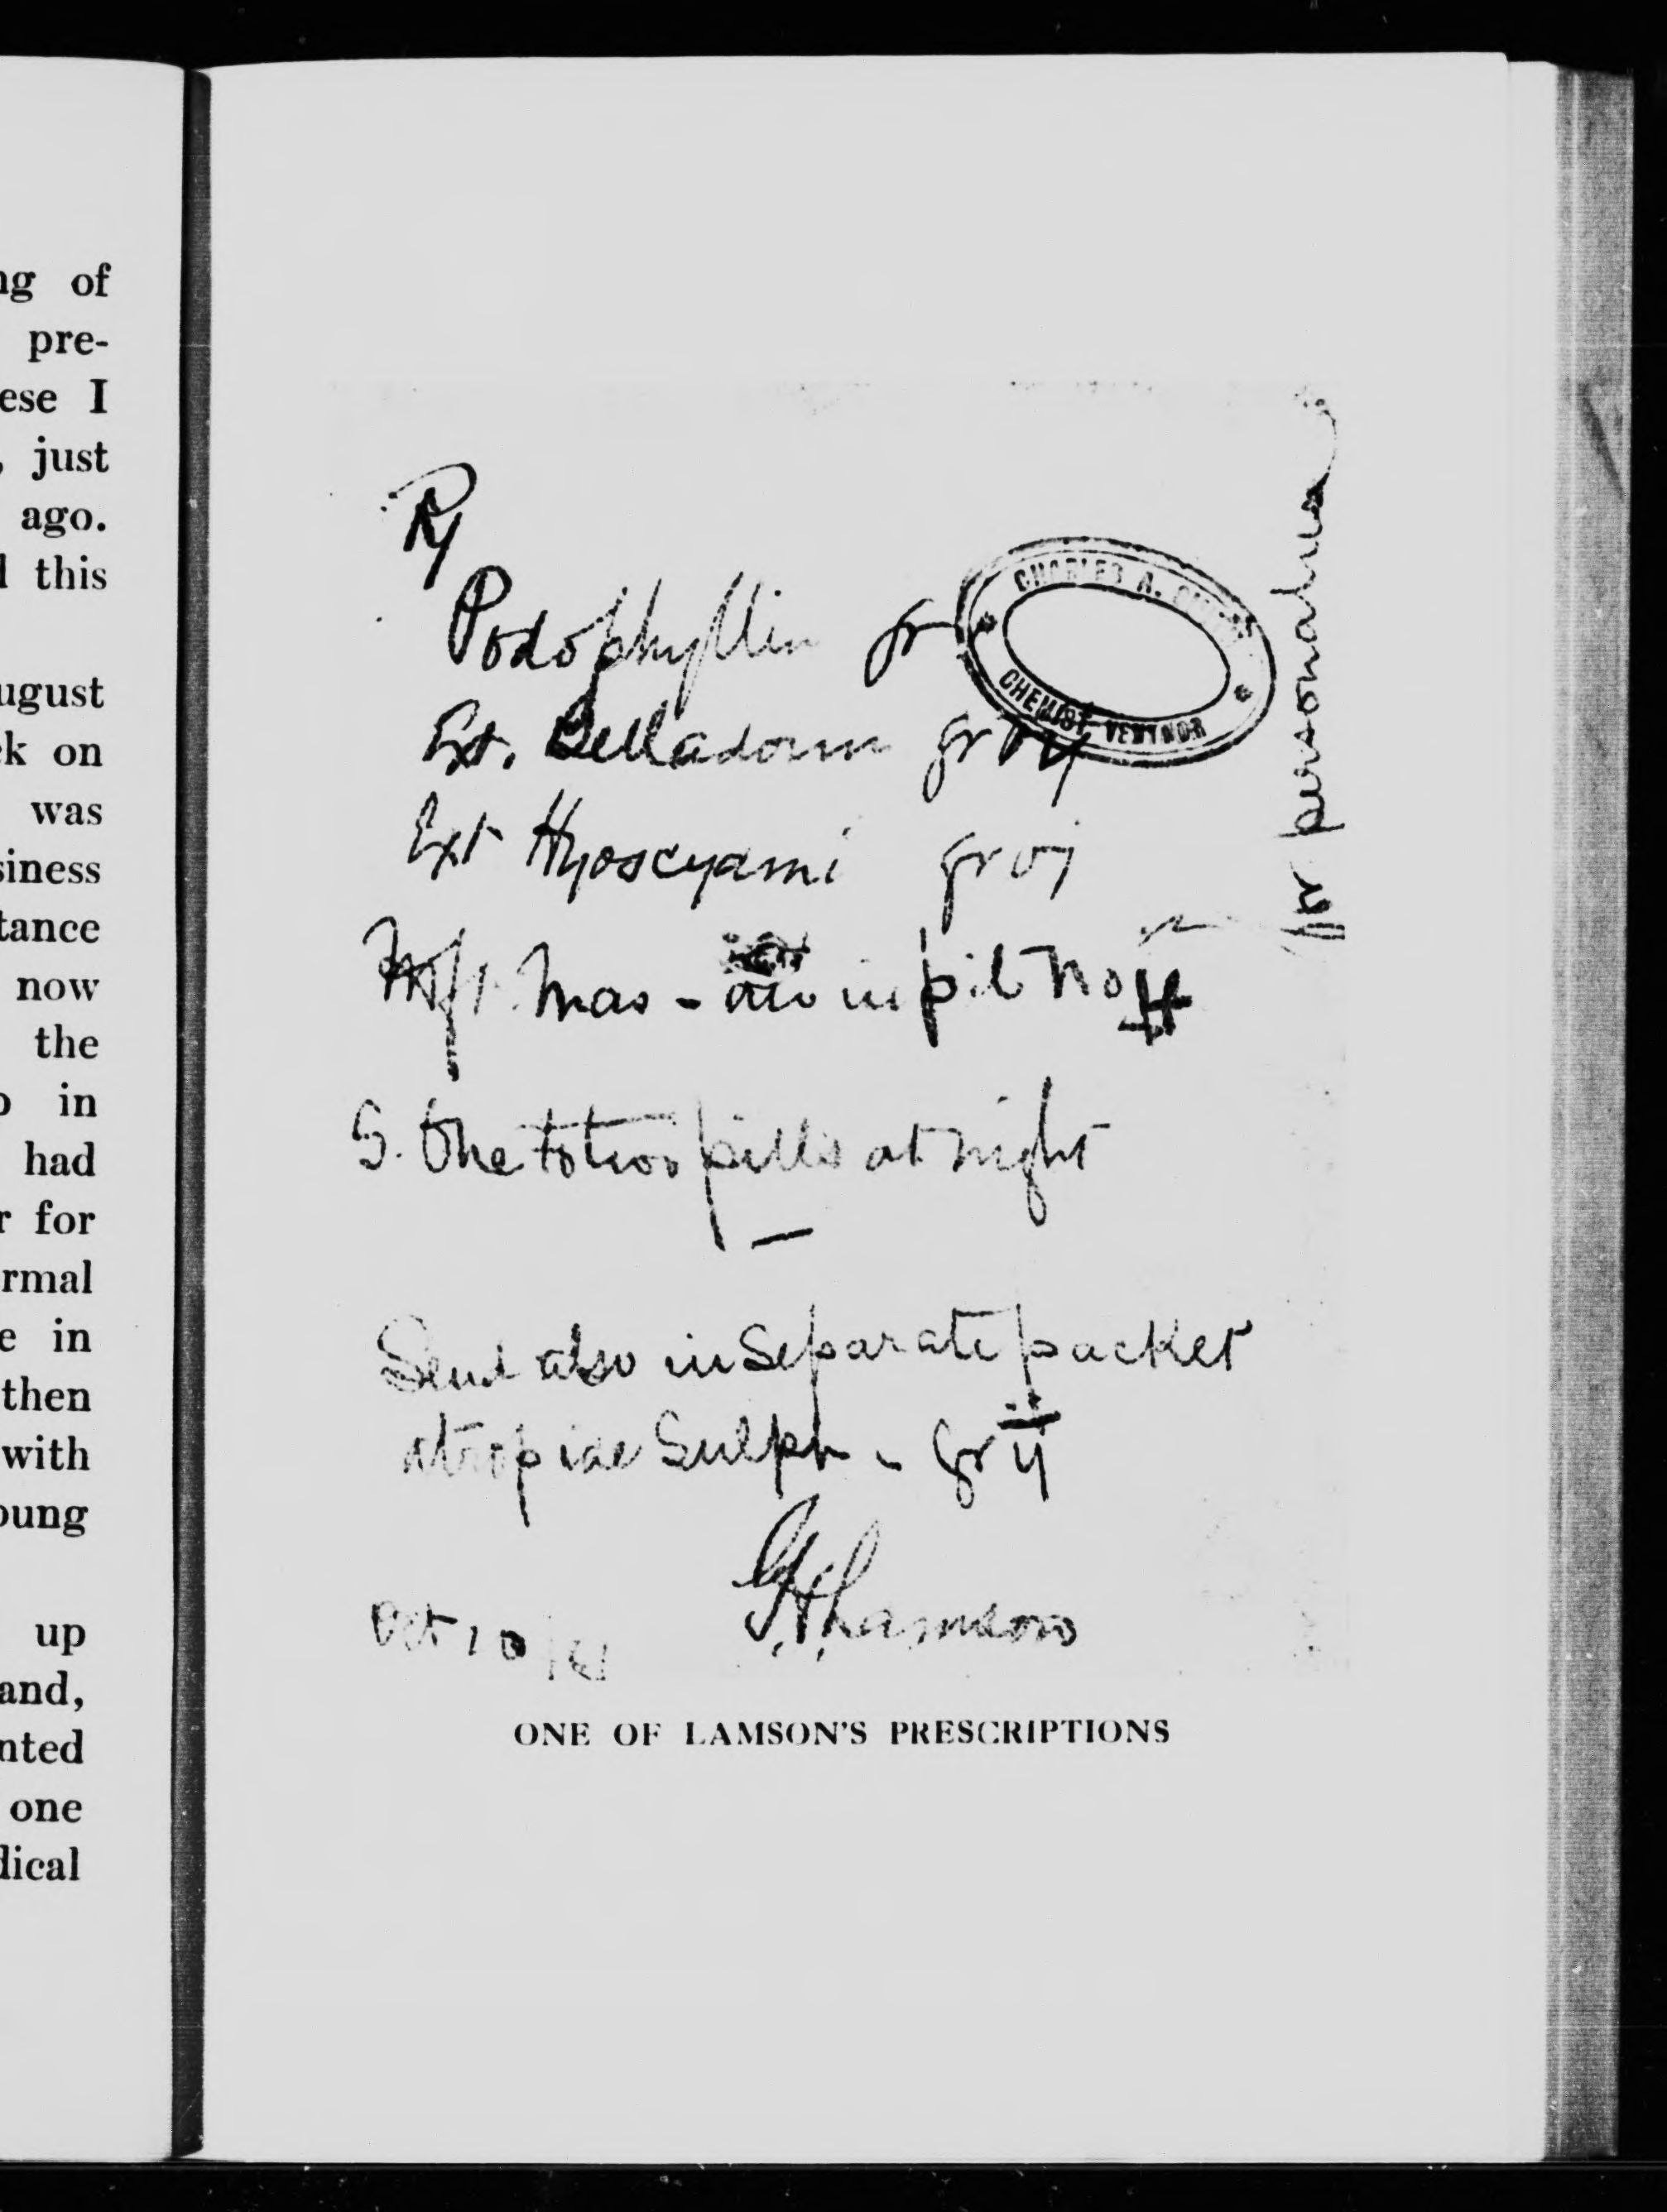 ng of
pre-
ese I
, just
ago.
l this
ugust
k on
was
siness
tance
now
the
in
had
r for
rmal
e in
then
with
oung
up
and,
nted
one
dical
Podophyllin gr
Ext. Belladonn gr
Ext Hyoscyami gr vj
Mas - in pil No
S. One to two pills at night
Send also in Separate packet
atropiae Sulph - gr ij
G.H. Lamson
Oct 10/81
CHARLES A.
CHEMIST VENTNOR
for personal use
ONE OF LAMSON'S PRESCRIPTIONS